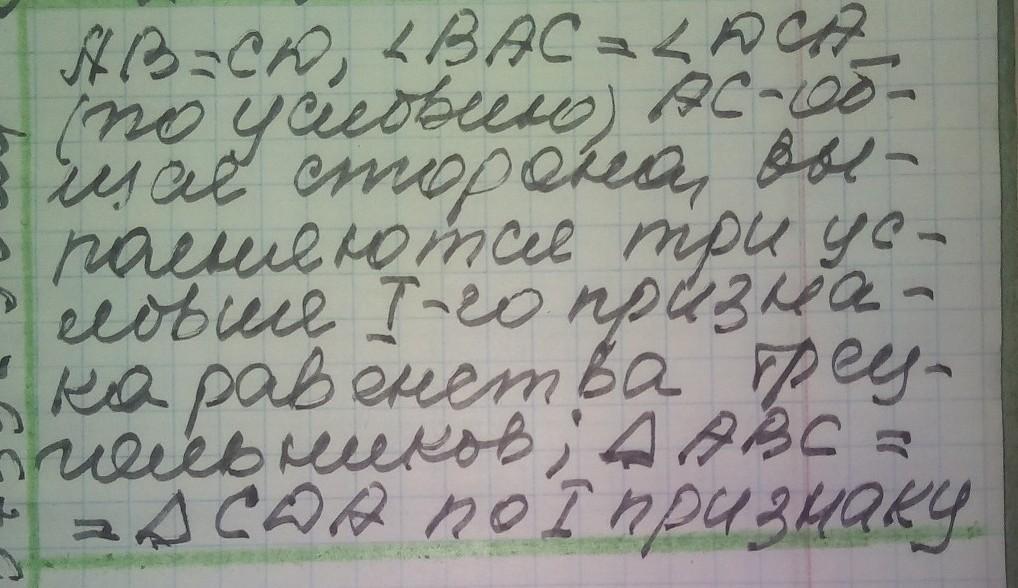 AB=CD, ∠BAC=∠DCA
(по условию) AC-об-
щая сторона, вы-
полняются три ус-
ловия I-го призна-
ка равенства треу-
гольников; △ABC=
=△CDA по I признаку